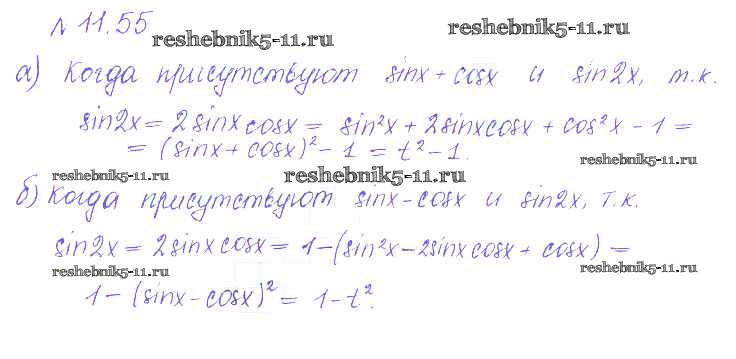 № 11.55
reshebnik5-11.ru reshebnik5-11.ru
а) Когда присутствуют sinx + cosx и sin2x, т.к.
sin2x = 2sinxcosx = sin²x + 2sinxcosx + cos²x - 1 =
= (sinx + cosx)² - 1 = t² - 1.
reshebnik5-11.ru reshebnik5-11.ru reshebnik5-11.ru
б) Когда присутствуют sinx - cosx и sin2x, т.к.
sin2x = 2sinxcosx = 1 - (sin²x - 2sinxcosx + cosx) =
reshebnik5-11.ru reshebnik5-11.ru
1 - (sinx - cosx)² = 1 - t².